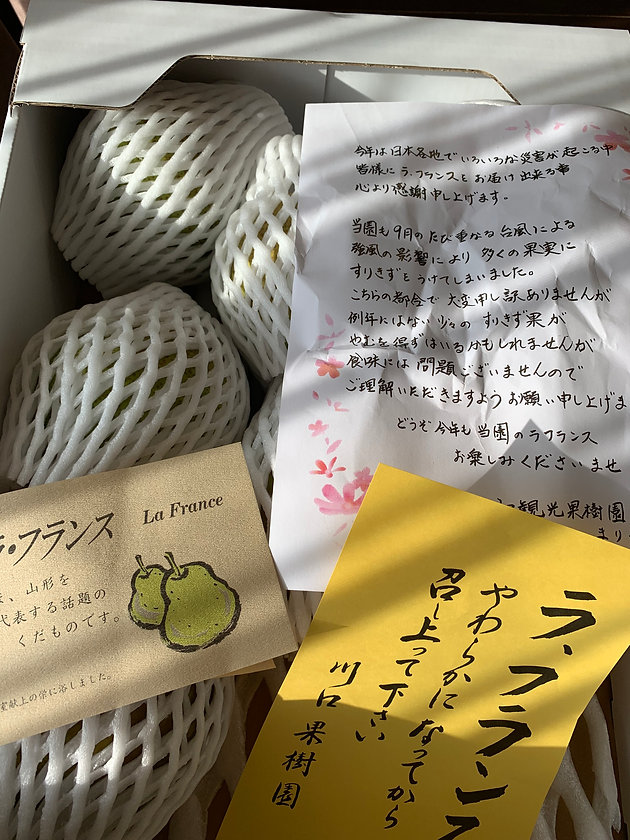 今年は日本各地でいろいろな災害が起こる中
皆様に ラ・フランスを お届け 出来る事
心より感謝申し上げます。
当園も9月のたび重なる 台風による
強風の影響により 多くの果実に
すりきずを うけてしまいました。
こちらの都合で 大変申し訳ありませんが
例年にはない 少々の すりきず果が
やむを得ずはいるかもしれませんが
食味には 問題ございませんので
ご理解いただきますよう お願い申し上げま
どうぞ今年も 当園のラフランス
お楽しみくださいませ
観光果樹園
ラ・フランス
La France
、山形を
代表する話題の
くだものです。
献上の栄に浴しました。
ラ、フランス
やわらかになってから
召し上って下さい
川口果樹園